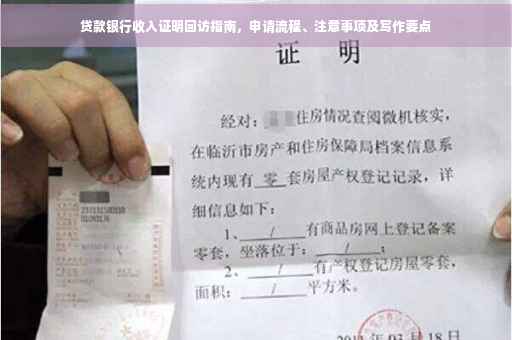 贷款银行收入证明回访指南，申请流程、注意事项及写作要点
证 明
经对：住房情况查阅微机核实，
在临沂市房产和住房保障局档案信息系
统内现有 零 套房屋产权登记记录，详
细信息如下：
1、 / 有商品房网上登记备案
零套，坐落位于： / ；
2、 / 有产权登记房屋零套，
面积： / 平方米。
年 03 月 18 日